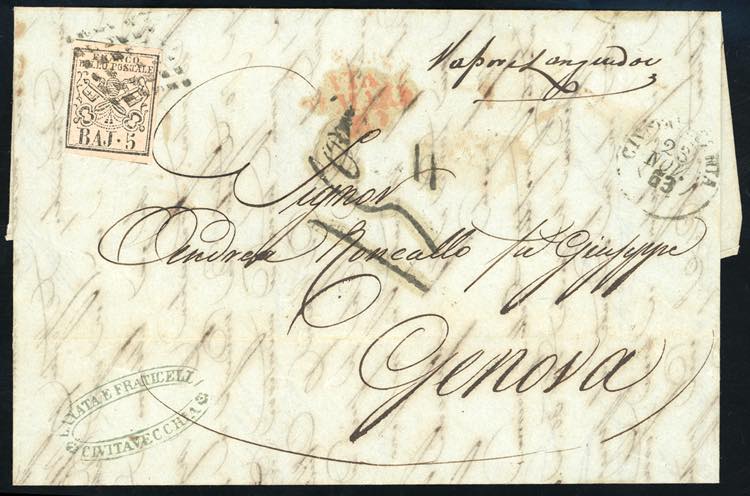 FRANCO
BOLLO POSTALE
BAJ. 5
Vapore Languedoc
CIVITAVECCHIA
25
NOV
63
4
Signor
Andrea Roncallo fu Giuseppe
Genova
E FRATICELLI
CIVITAVECCHIA